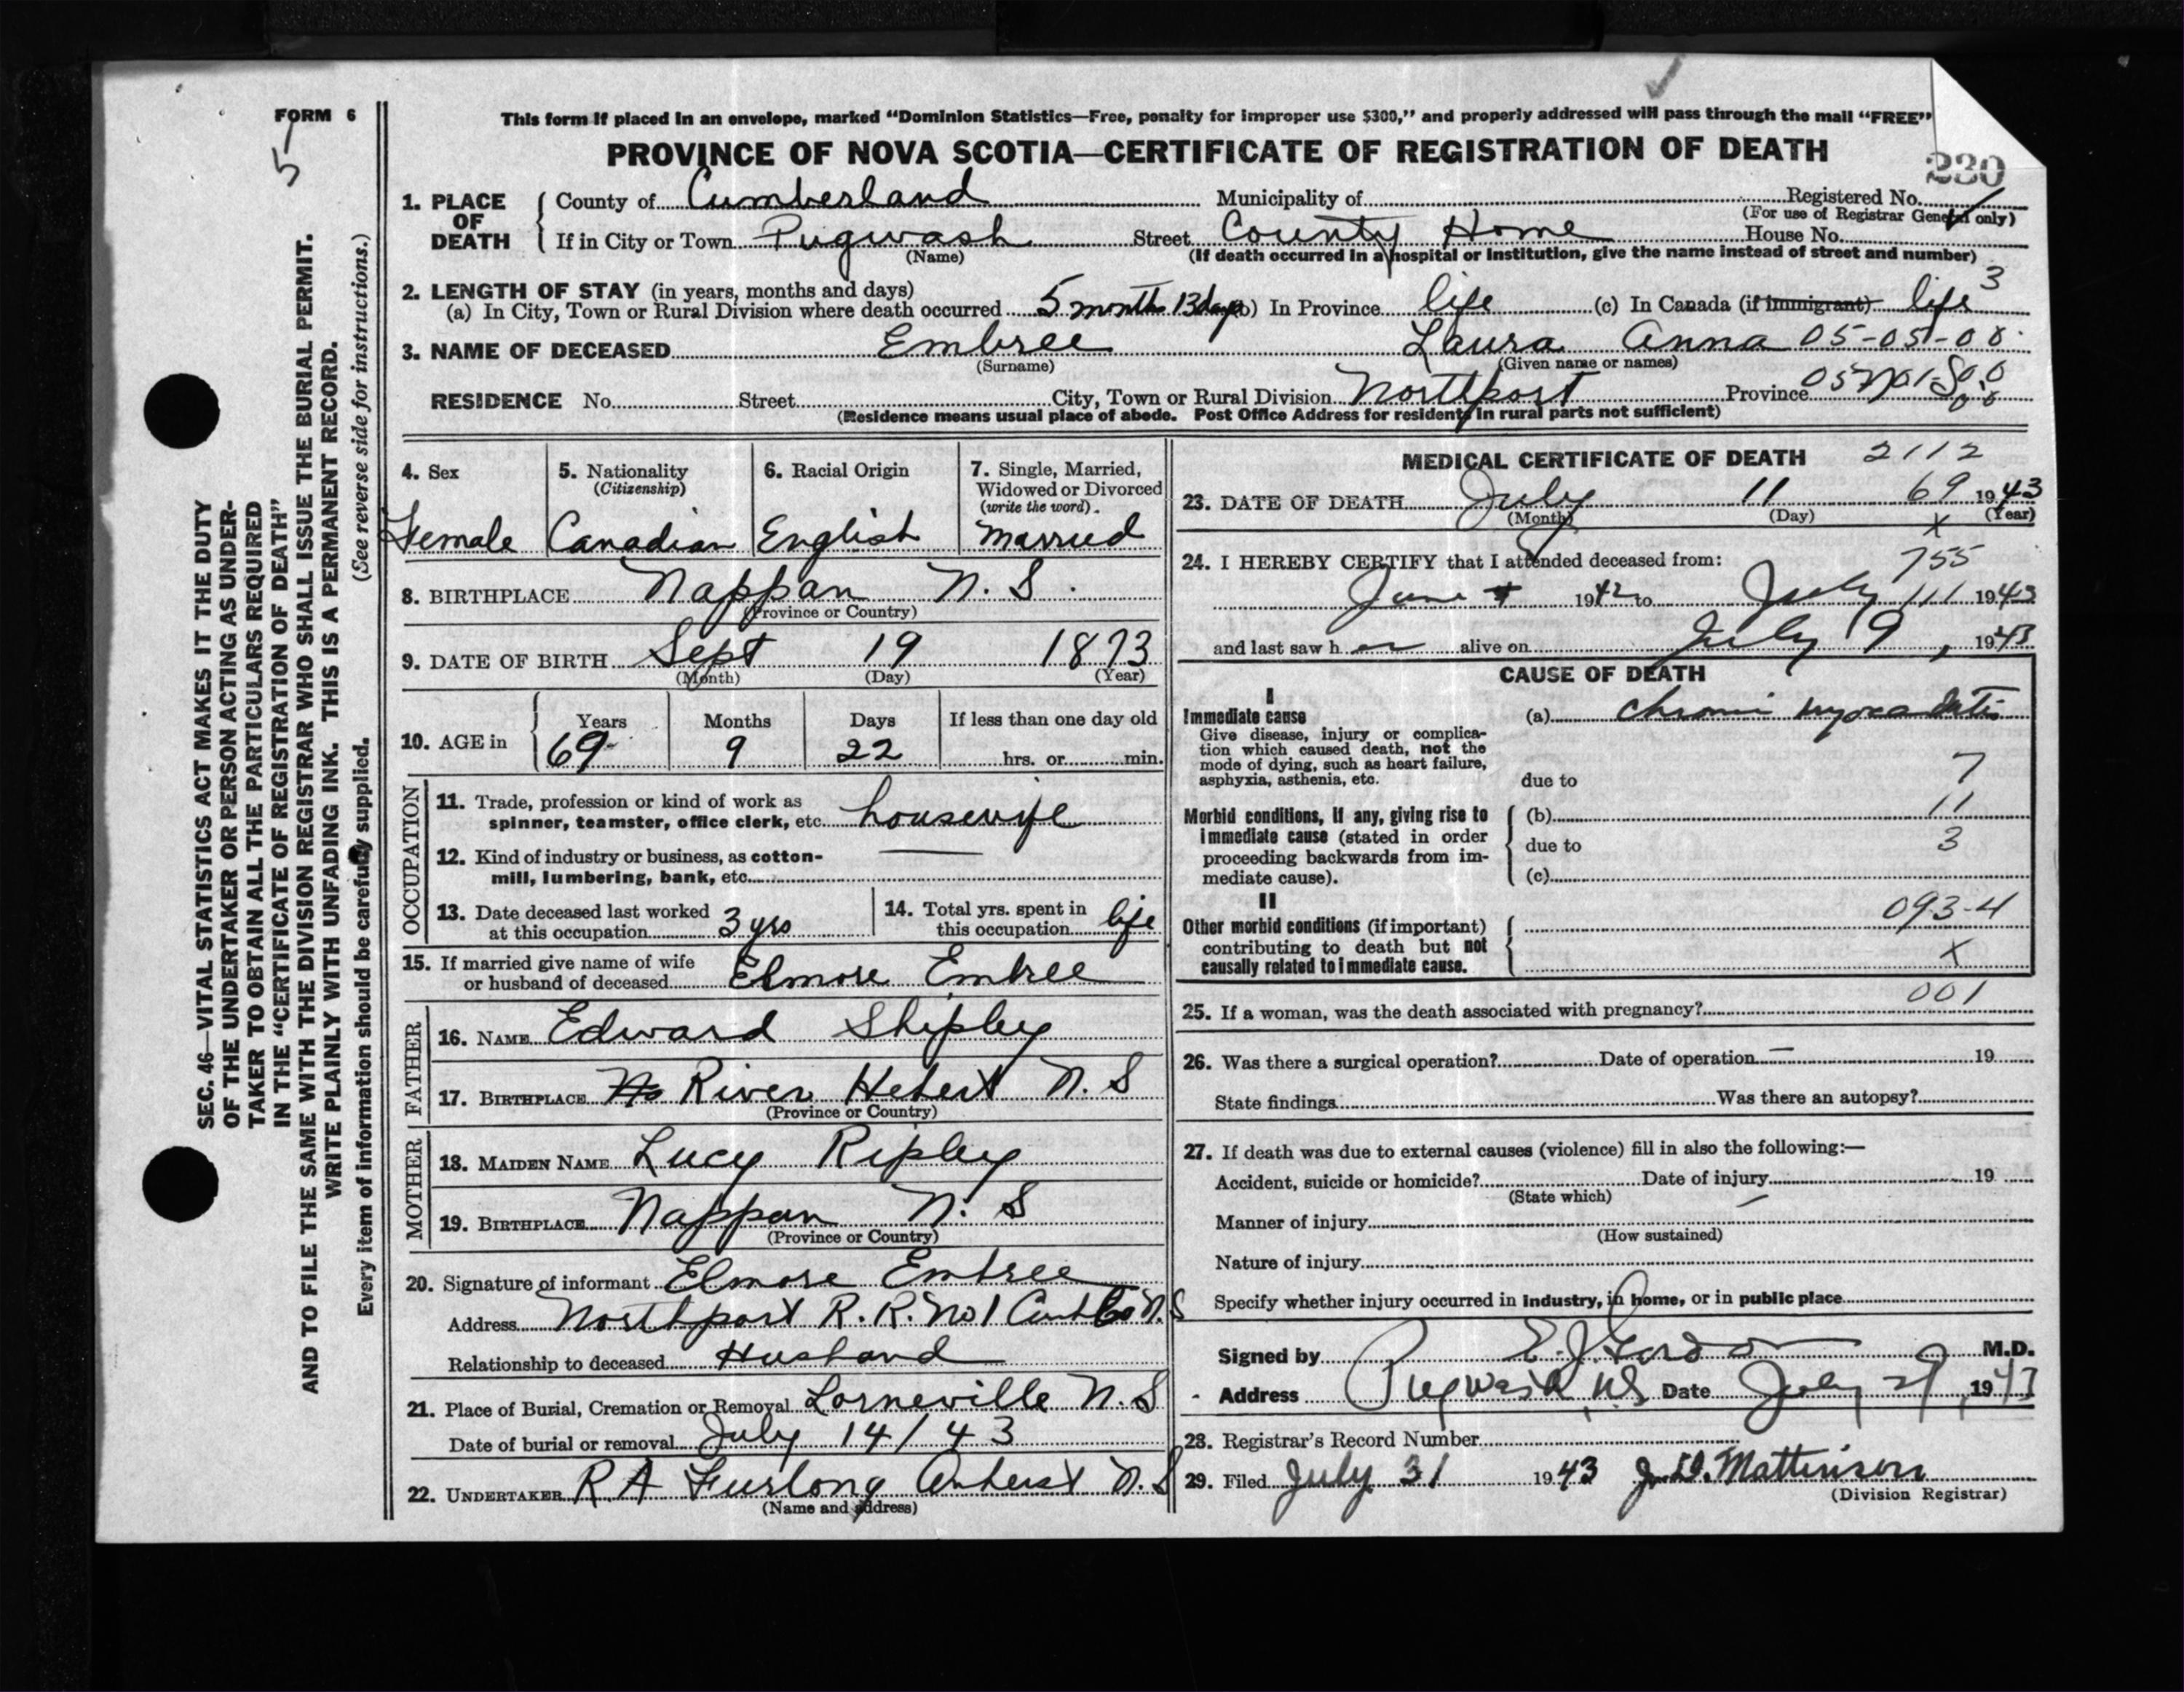 FORM 6
5
This form if placed in an envelope, marked "Dominion Statistics—Free, penalty for improper use $300," and properly addressed will pass through the mail "FREE"
PROVINCE OF NOVA SCOTIA—CERTIFICATE OF REGISTRATION OF DEATH
230
1. PLACE OF DEATH
County of Cumberland Municipality of Registered No.
(For use of Registrar General only)
If in City or Town Pugwash Street County Home House No.
(Name) (If death occurred in a hospital or institution, give the name instead of street and number)
2. LENGTH OF STAY (in years, months and days)
(a) In City, Town or Rural Division where death occurred 5 months 13 days (b) In Province life (c) In Canada (if immigrant) life 3
3. NAME OF DECEASED Embree Laura Anna 05-05-00
(Surname) (Given name or names)
RESIDENCE No. Street City, Town or Rural Division Northport Province
(Residence means usual place of abode. Post Office Address for residents in rural parts not sufficient)
4. Sex
Female
5. Nationality
(Citizenship)
Canadian
6. Racial Origin
English
7. Single, Married, Widowed or Divorced
(write the word)
Married
8. BIRTHPLACE Nappan N.S.
(Province or Country)
9. DATE OF BIRTH Sept 19 1873
(Month) (Day) (Year)
10. AGE in
Years Months Days If less than one day old
69 9 22 hrs. or min.
OCCUPATION
11. Trade, profession or kind of work as
spinner, teamster, office clerk, etc. housewife
12. Kind of industry or business, as cotton-
mill, lumbering, bank, etc.
13. Date deceased last worked
at this occupation 3 yrs
14. Total yrs. spent in
this occupation life
15. If married give name of wife
or husband of deceased Elmore Embree
FATHER
16. NAME Edward Shipley
17. BIRTHPLACE No River Hebert N.S
(Province or Country)
MOTHER
18. MAIDEN NAME Lucy Ripley
19. BIRTHPLACE Nappan N.S
(Province or Country)
20. Signature of informant Elmore Embree
Address Northport R.R. No 1 Cumb Co N.S
Relationship to deceased Husband
21. Place of Burial, Cremation or Removal Lorneville N.S
Date of burial or removal July 14/43
22. UNDERTAKER R A Furlong Amherst N.S
(Name and address)
MEDICAL CERTIFICATE OF DEATH 2112
23. DATE OF DEATH July 11 69 1943
(Month) (Day) (Year)
X
24. I HEREBY CERTIFY that I attended deceased from:
755
June 1942 to July 11 1943
and last saw h er alive on July 9, 1943
CAUSE OF DEATH
I
Immediate cause
Give disease, injury or complica-
tion which caused death, not the
mode of dying, such as heart failure,
asphyxia, asthenia, etc.
(a) Chronic myocarditis
7
due to
Morbid conditions, if any, giving rise to
immediate cause (stated in order
proceeding backwards from im-
mediate cause).
(b) 11
due to 3
(c)
II
Other morbid conditions (if important)
contributing to death but not
causally related to immediate cause.
093-4
X
001
25. If a woman, was the death associated with pregnancy?
26. Was there a surgical operation? Date of operation — 19
State findings Was there an autopsy?
27. If death was due to external causes (violence) fill in also the following:—
Accident, suicide or homicide? Date of injury 19
(State which)
Manner of injury
(How sustained)
Nature of injury
Specify whether injury occurred in industry, in home, or in public place
Signed by E. J. Gordon M.D.
Address Pugwash, NS Date July 29, 1943
28. Registrar's Record Number
29. Filed July 31 1943 Mattinson
(Division Registrar)
SEC. 46—VITAL STATISTICS ACT MAKES IT THE DUTY
OF THE UNDERTAKER OR PERSON ACTING AS UNDER-
TAKER TO OBTAIN ALL THE PARTICULARS REQUIRED
IN THE "CERTIFICATE OF REGISTRATION OF DEATH"
AND TO FILE THE SAME WITH THE DIVISION REGISTRAR WHO SHALL ISSUE THE BURIAL PERMIT.
WRITE PLAINLY WITH UNFADING INK. THIS IS A PERMANENT RECORD.
Every item of information should be carefully supplied. (See reverse side for instructions.)